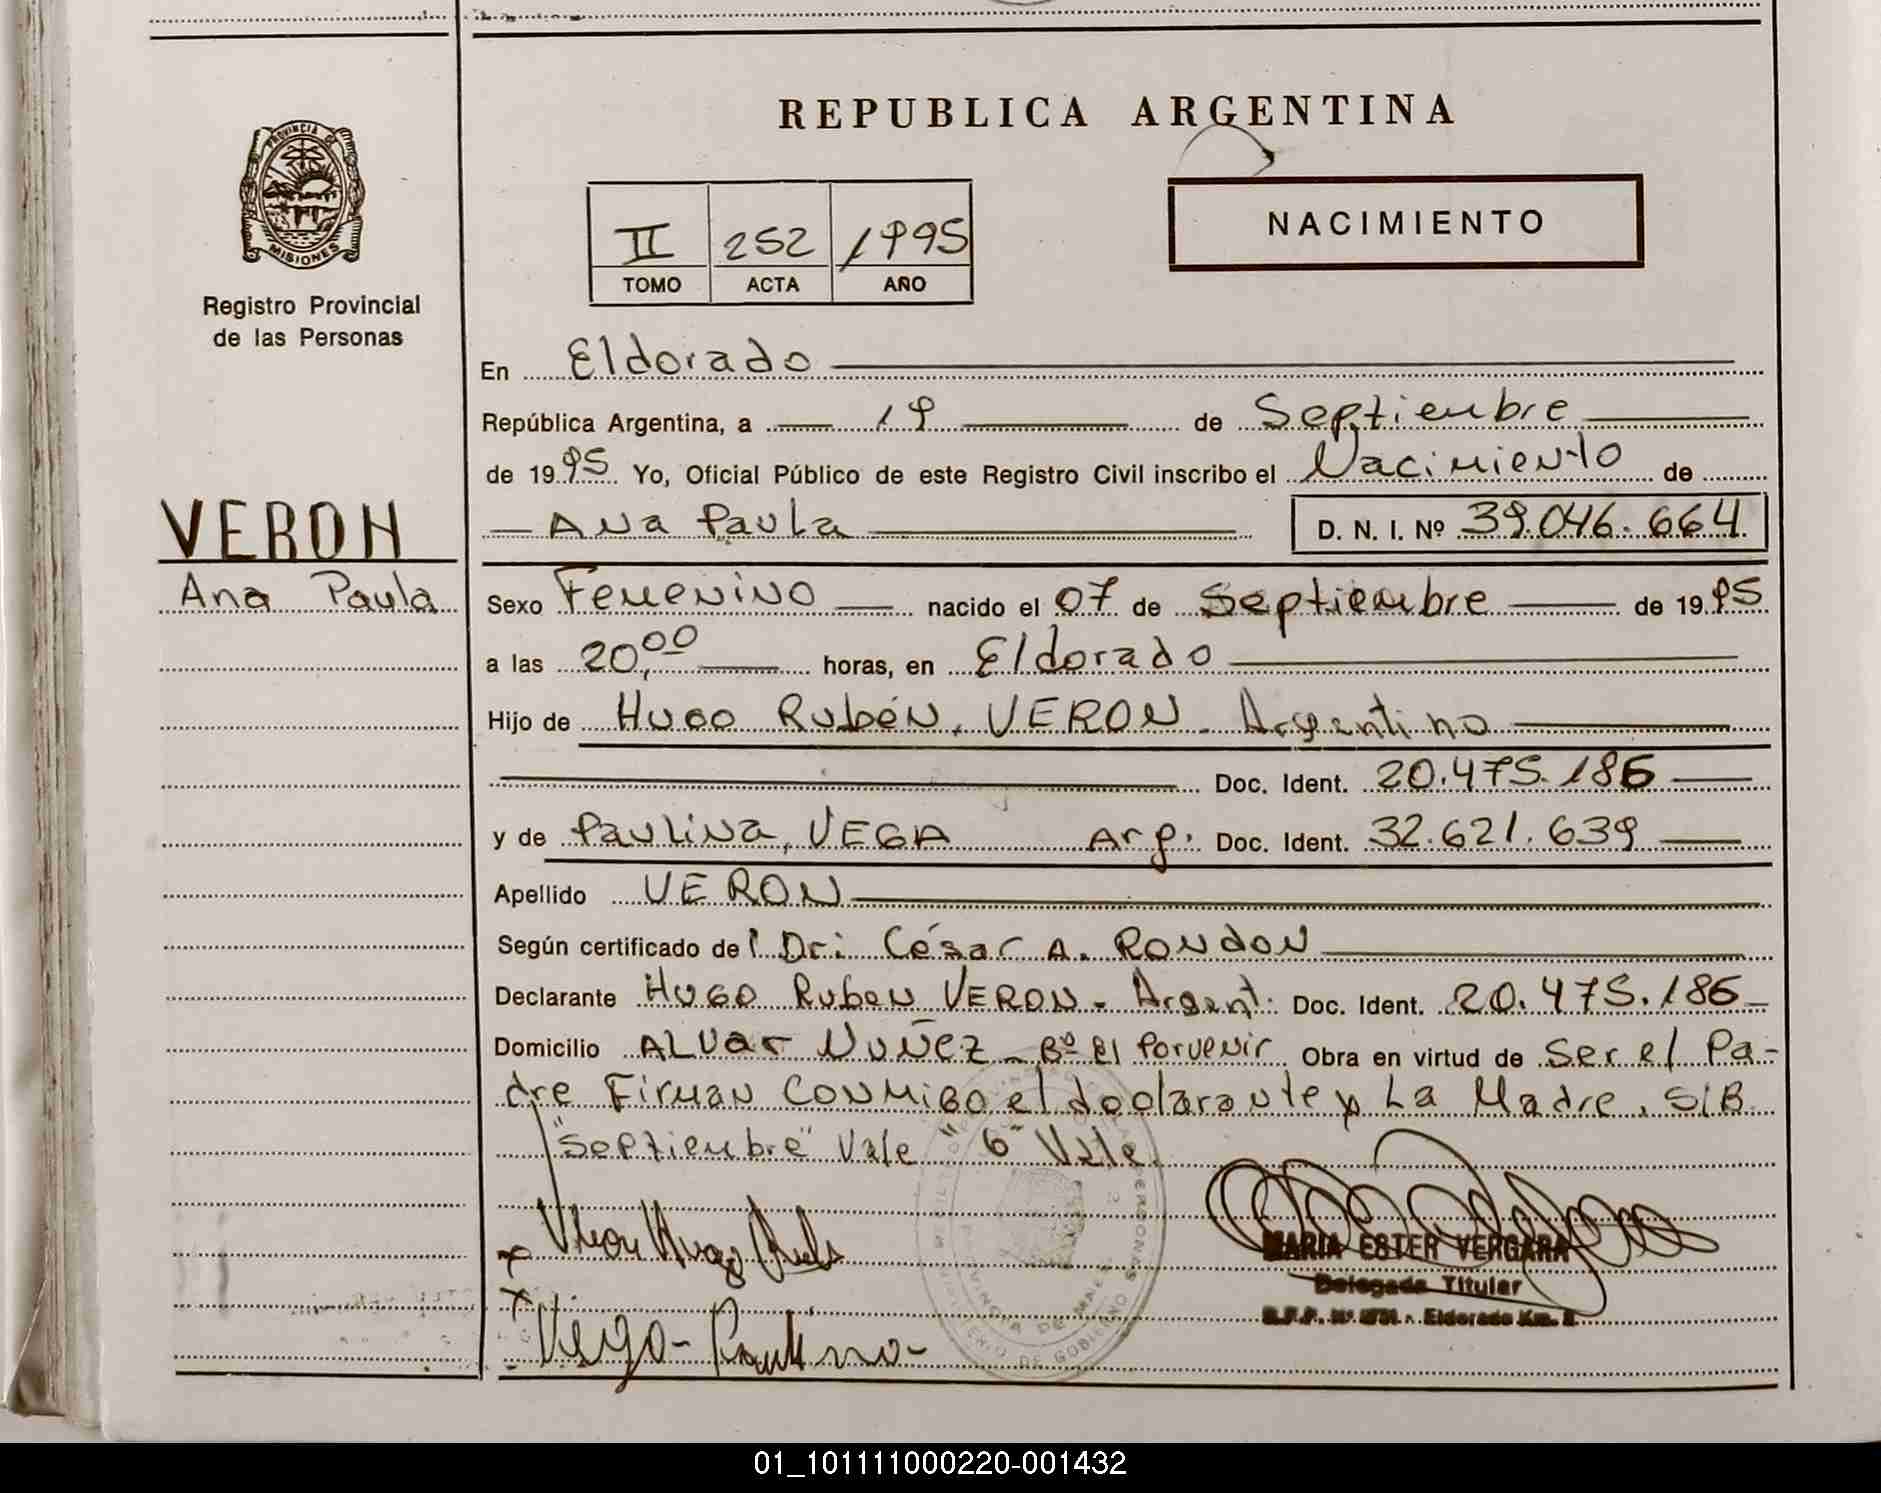 REPUBLICA ARGENTINA
PROVINCIA DE
MISIONES
Registro Provincial
de las Personas
II 252 1995
TOMO ACTA AÑO
NACIMIENTO
En Eldorado
República Argentina, a 19 de Septiembre
de 1995 Yo, Oficial Público de este Registro Civil inscribo el Nacimiento de
Ana Paula D. N. I. Nº 39.046.664
VERON
Ana Paula
Sexo Femenino nacido el 07 de Septiembre de 1995
a las 20,00 horas, en Eldorado
Hijo de Hugo Rubén, VERON - Argentino
Doc. Ident. 20.475.186
y de Paulina, VEGA Arg. Doc. Ident. 32.621.639
Apellido VERON
Según certificado del Dr: César A. Rondon
Declarante Hugo Ruben VERON - Argent. Doc. Ident. 20.475.186
Domicilio ALVar NUÑEZ - Bº El Porvenir Obra en virtud de Ser el Pa-
dre Firman Conmigo el declarante y La Madre. S/B
"Septiembre" Vale "6" Vale.
Veron Hugo Rubén
MARIA ESTER VERGARA
Delegada Titular
Eldorado Km.
Vega - Paulina -
01_101111000220-001432